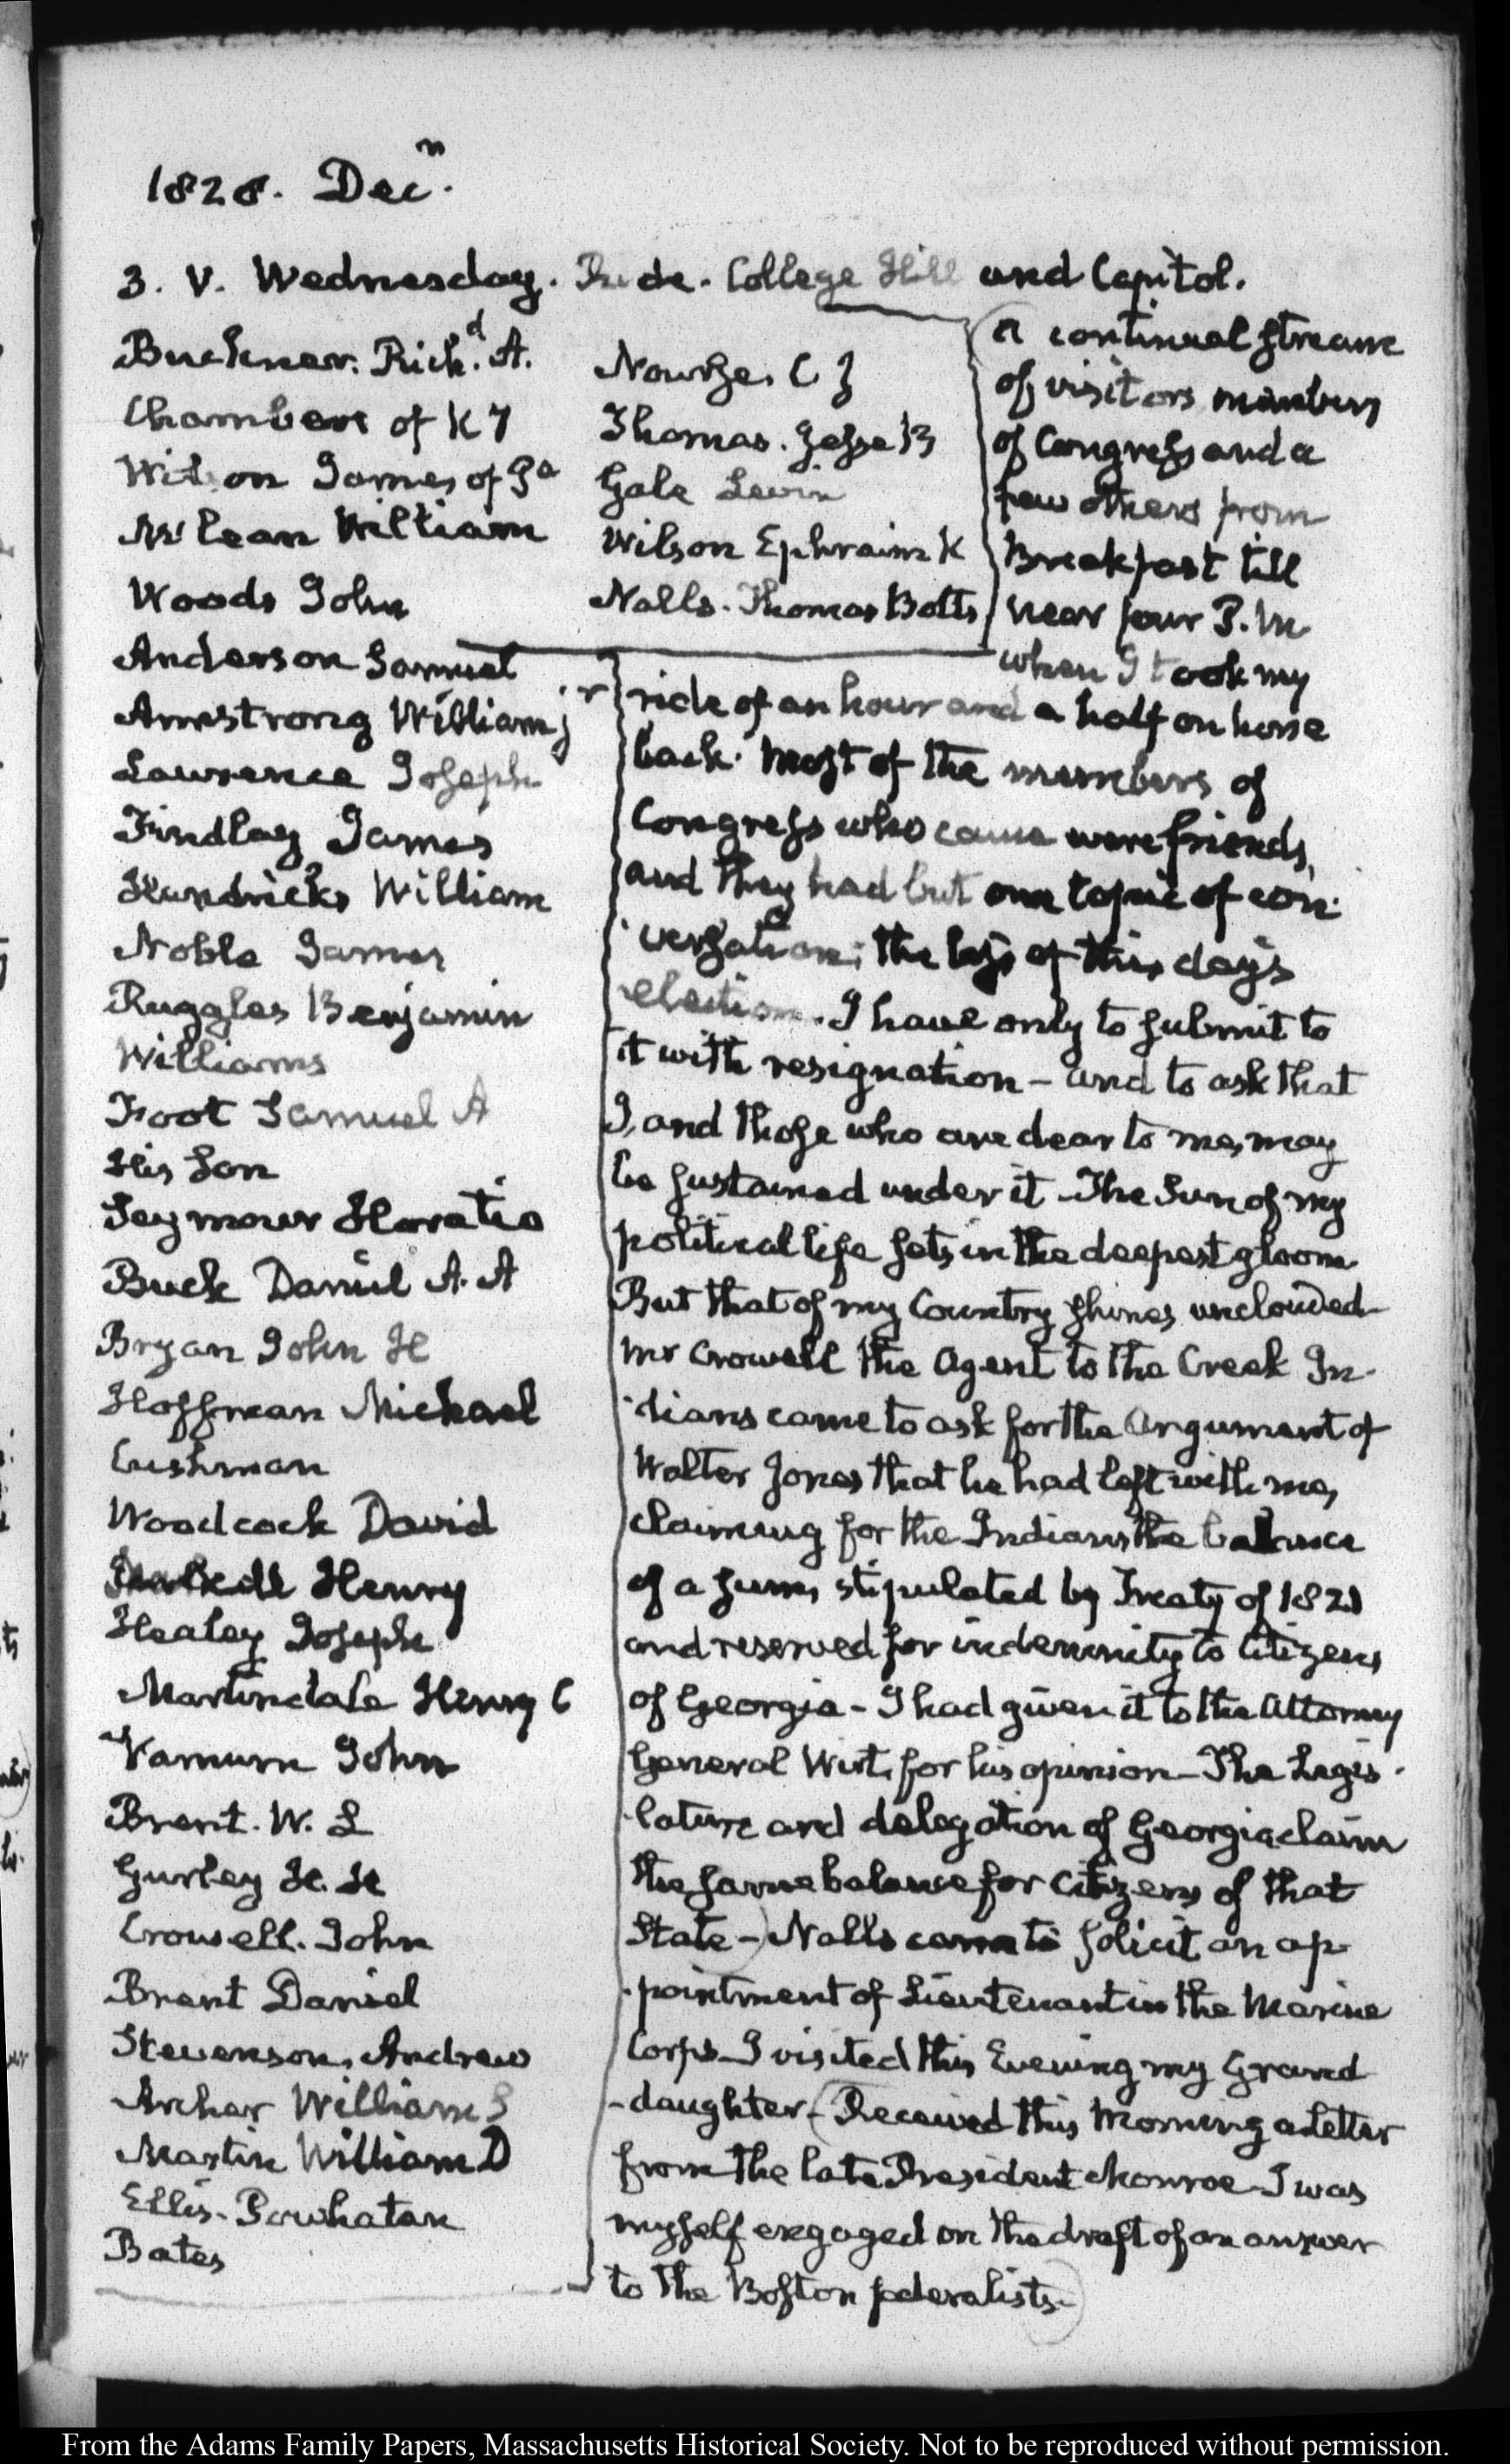 1828. Decr.
3. V. Wednesday. Ride. College Hill and Capitol.
Buckner. Richd. A.
Chambers of KY
Wilson James of Pa
McLean William
Woods John
Anderson Samuel
Armstrong William jr
Lawrence Joseph
Findlay James
Hendricks William
Noble James
Ruggles Benjamin
Williams
Foot Samuel A
His Son
Seymour Horatio
Buck Daniel A. A
Bryan John H
Hoffman Michael
Cushman
Woodcock David
Henry
Healey Joseph
Martindale Henry C
Varnum John
Brent. W. L
Gurley H. H
Crowell. John
Brent Daniel
Stevenson, Andrew
Archer William S
Martin William D
Ellis. Powhatan
Bates
Nourse. C J
Thomas. Jesse B
Gale Levin
Wilson Ephraim K
Nalls. Thomas Botts
A continual stream
of visitors members
of Congress and a
few others from
Breakfast till
near four P.M
when I took my
ride of an hour and a half on horse
back. Most of the members of
Congress who came were friends,
and they had but one topic of con-
-versation; the loss of this day's
election. I have only to submit to
it with resignation - and to ask that
I, and those who are dear to me, may
be sustained under it The Sun of my
political life sets in the deepest gloom
But that of my Country shines unclouded-
Mr Crowell the Agent to the Creek In-
-dians came to ask for the Argument of
Walter Jones that he had left with me,
claiming for the Indians the balance
of a sum, stipulated by Treaty of 1821
and reserved for indemnity to Citizens
of Georgia - I had given it to the Attorney
General Wirt, for his opinion - The Legis-
-lature and delegation of Georgia claim
the same balance for Citizens of that
State - Nalls came to solicit an ap-
-pointment of Lieutenant in the Marine
Corps - I visited this Evening my Grand
-daughter - Received this Morning a Letter
from the late President Monroe - I was
myself engaged on the draft of an answer
to the Boston federalists.
From the Adams Family Papers, Massachusetts Historical Society. Not to be reproduced without permission.